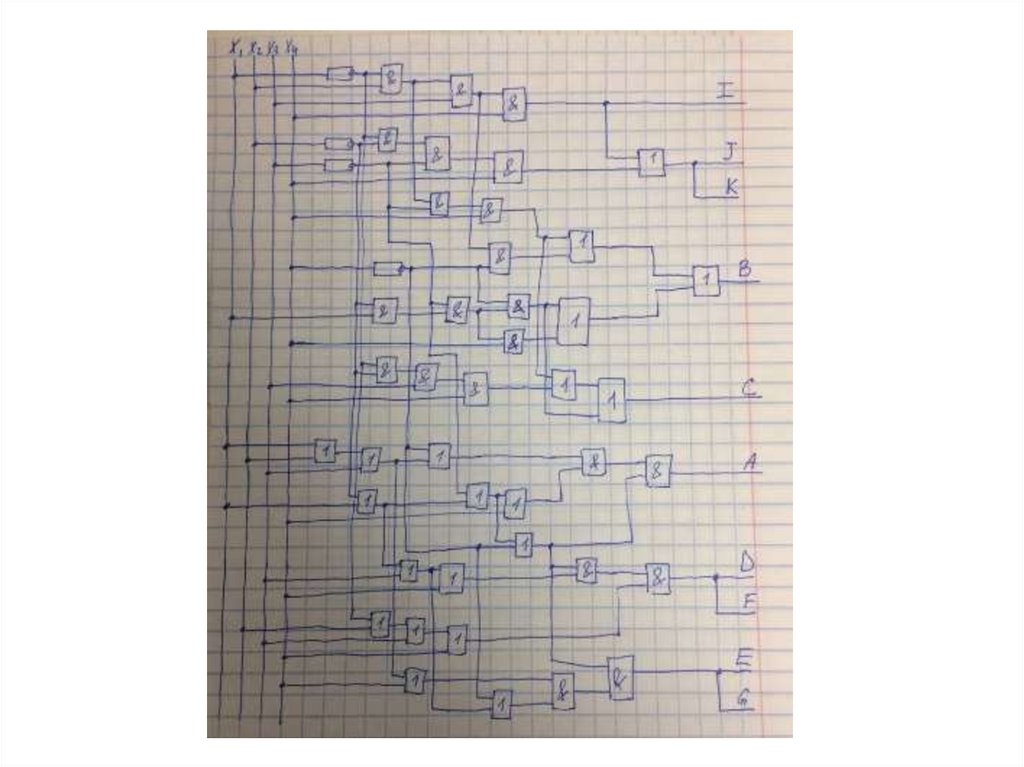 X₁ X₂ X₃ X₄
& & &
I
& & &
1
J
K
& &
& 1
1
B
& & &
1
&
& & &
1
1
C
1 1 1
& &
A
1 1 1
1
1 1
& &
D
F
1 1 1
E
1 & &
1
G